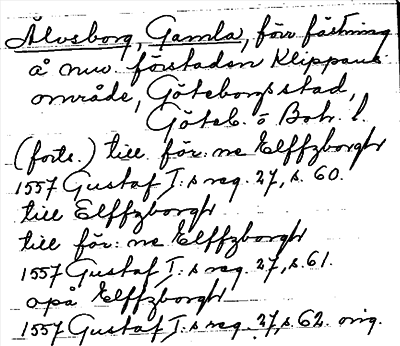 Älvsborg, Gamla, förr fästning
å nuv. förstaden Klippans
område, Göteborgs stad,
Göteb. o Boh. l.
(forts.) till för:ne Elffzborgh
1557 Gustaf I:s reg. 27, s. 60.
till Elffzborgh
till för:ne Elffzborgh
1557 Gustaf I:s reg. 27, s. 61.
opå Elffzborgh
1557 Gustaf I:s reg. 27, s. 62. orig.